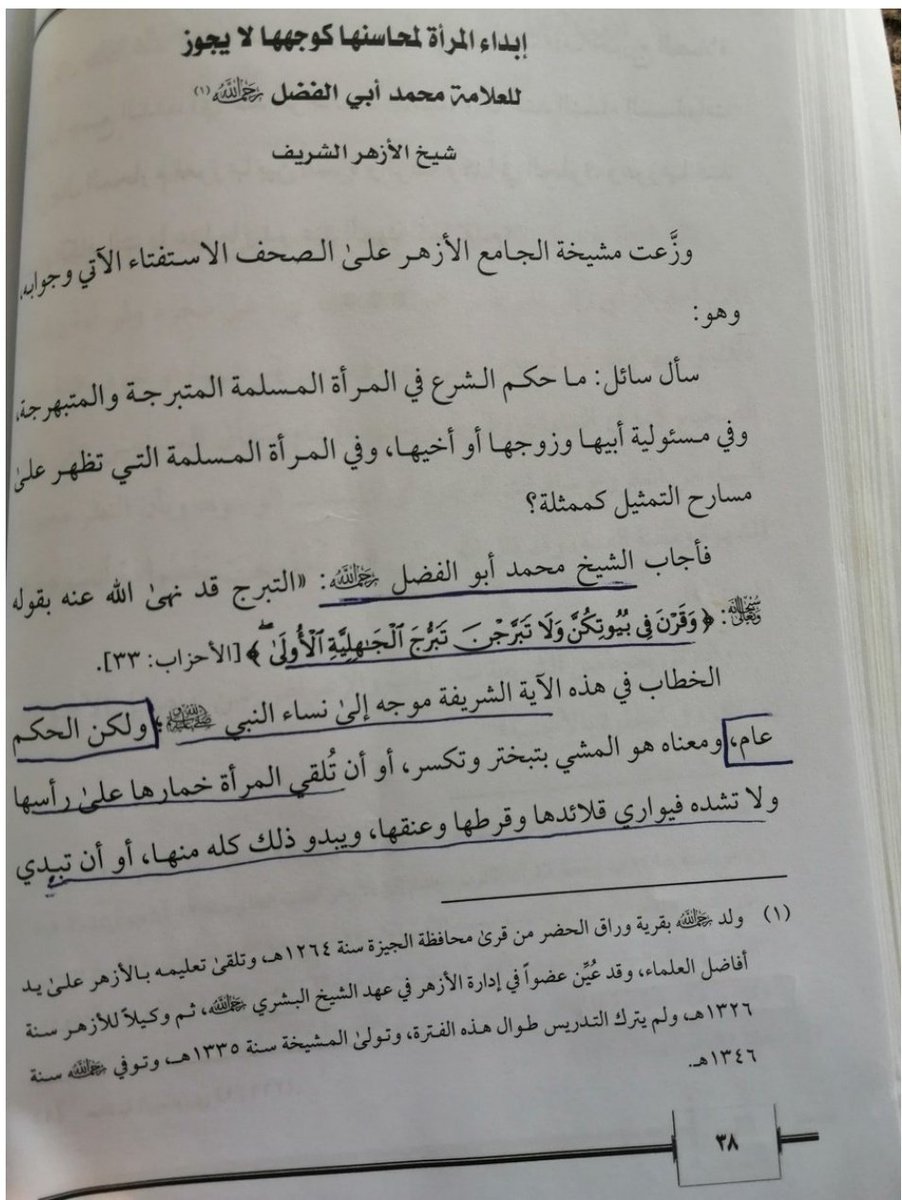 إبداء المرأة لمحاسنها كوجهها لا يجوز
للعلامة محمد أبي الفضل رَحِمَهُ اللَّهُ (١)
شيخ الأزهر الشريف
وزَّعت مشيخة الجامع الأزهر علىٰ الصحف الاستفتاء الآتي وجوابه،
وهو:
سأل سائل: ما حكم الشرع في المرأة المسلمة المتبرجة والمتبهرجة،
وفي مسئولية أبيها وزوجها أو أخيها، وفي المرأة المسلمة التي تظهر علىٰ
مسارح التمثيل كممثلة؟
فأجاب الشيخ محمد أبو الفضل رَحِمَهُ اللَّهُ: «التبرج قد نهىٰ الله عنه بقوله
سُبْحَانَهُ وَتَعَالَى: ﴿وَقَرْنَ فِي بُيُوتِكُنَّ وَلَا تَبَرَّجْنَ تَبَرُّجَ الْجَاهِلِيَّةِ الْأُولَىٰ﴾ [الأحزاب: ٣٣].
الخطاب في هذه الآية الشريفة موجه إلىٰ نساء النبي ﷺ؛ ولكن الحكم
عام، ومعناه هو المشي بتبختر وتكسر، أو أن تُلقي المرأة خمارها علىٰ رأسها
ولا تشده فيواري قلائدها وقرطها وعنقها، ويبدو ذلك كله منها، أو أن تبدي
(١) ولد رَحِمَهُ اللَّهُ بقرية وراق الحضر من قرىٰ محافظة الجيزة سنة ١٢٦٤هـ، وتلقىٰ تعليمه بالأزهر علىٰ يد
أفاضل العلماء، وقد عُيِّن عضواً في إدارة الأزهر في عهد الشيخ البشري رَحِمَهُ اللَّهُ، ثم وكيلاً للأزهر سنة
١٣٢٦هـ، ولم يترك التدريس طوال هذه الفترة، وتولىٰ المشيخة سنة ١٣٣٥هـ، وتوفي رَحِمَهُ اللَّهُ سنة
١٣٤٦هـ.
٣٨